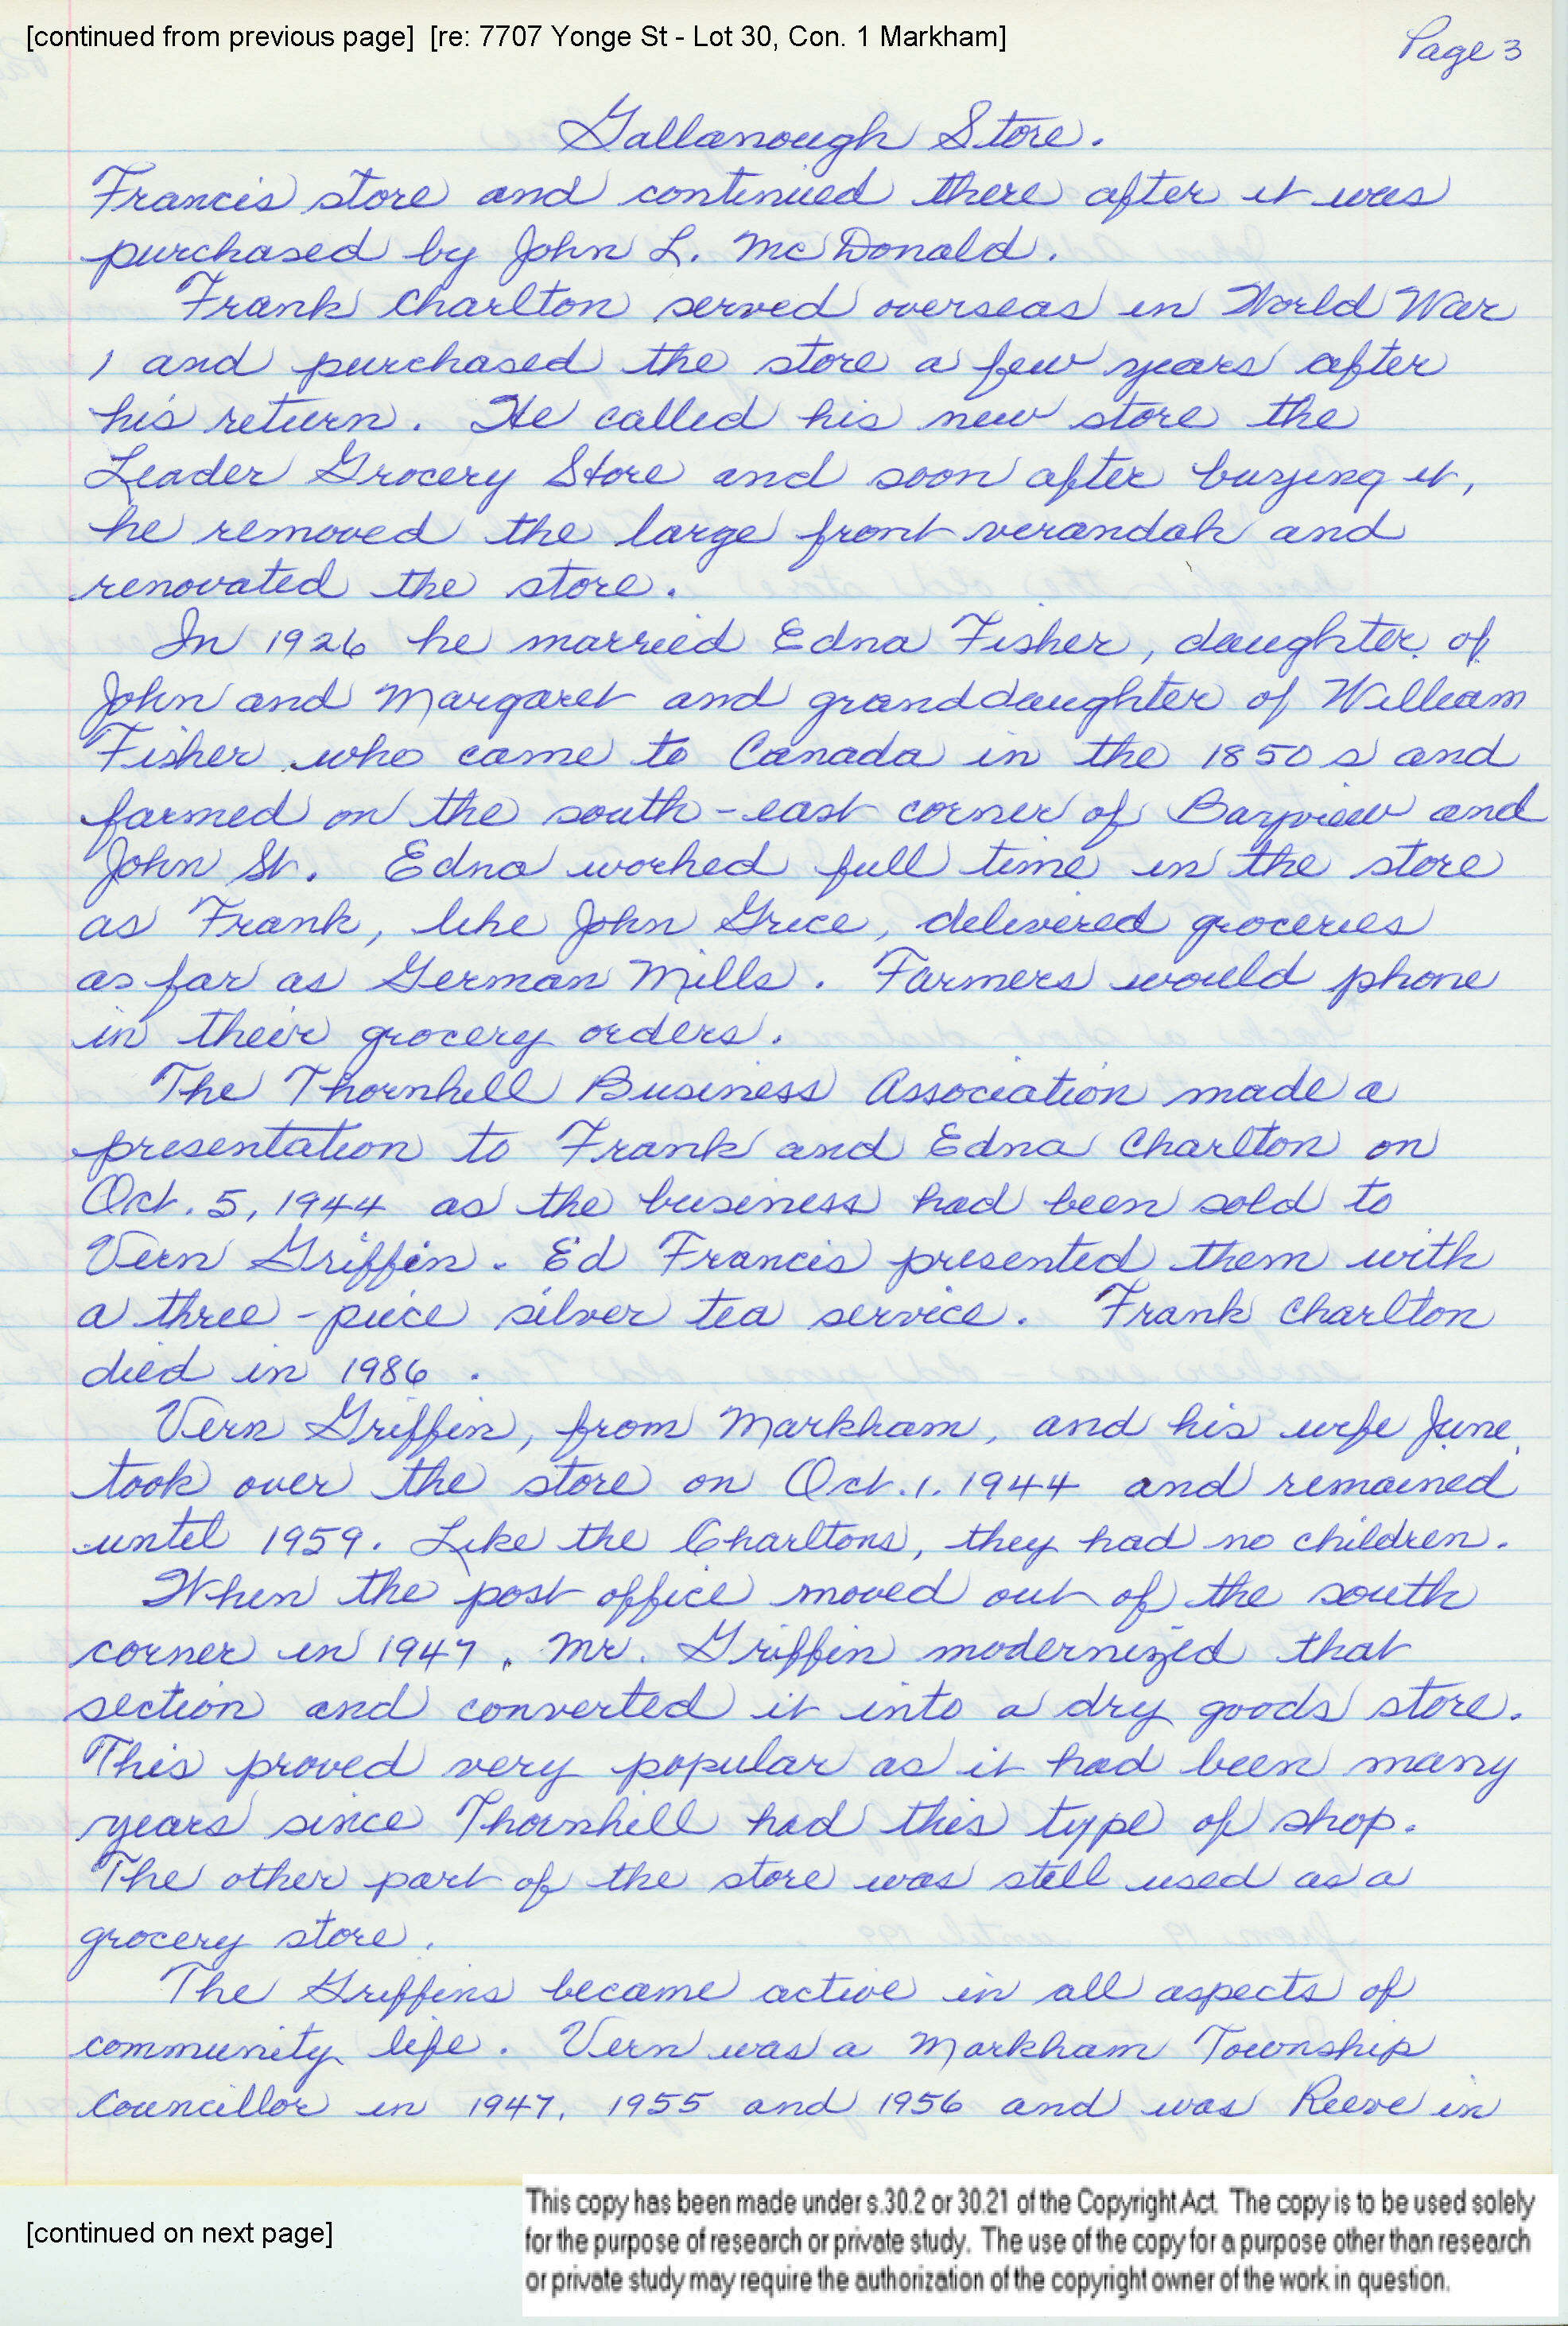 [continued from previous page] [re: 7707 Yonge St - Lot 30, Con. 1 Markham]
Page 3
Gallanough Store.
Francis store and continued there after it was
purchased by John L. McDonald.
Frank Charlton served overseas in World War
1 and purchased the store a few years after
his return. He called his new store the
Leader Grocery Store and soon after buying it,
he removed the large front verandah and
renovated the store.
In 1926 he married Edna Fisher, daughter of
John and Margaret and granddaughter of William
Fisher who came to Canada in the 1850s and
farmed on the south-east corner of Bayview and
John St. Edna worked full time in the store
as Frank, like John Grice, delivered groceries
as far as German Mills. Farmers would phone
in their grocery orders.
The Thornhill Business Association made a
presentation to Frank and Edna Charlton on
Oct. 5, 1944 as the business had been sold to
Vern Griffin. Ed Francis presented them with
a three-piece silver tea service. Frank Charlton
died in 1986.
Vern Griffin, from Markham, and his wife June,
took over the store on Oct. 1. 1944 and remained
until 1959. Like the Charltons, they had no children.
When the post office moved out of the south
corner in 1947, Mr. Griffin modernized that
section and converted it into a dry goods store.
This proved very popular as it had been many
years since Thornhill had this type of shop.
The other part of the store was still used as a
grocery store.
The Griffins became active in all aspects of
community life. Vern was a Markham Township
Councillor in 1947, 1955 and 1956 and was Reeve in
[continued on next page]
This copy has been made under s.30.2 or 30.21 of the Copyright Act. The copy is to be used solely
for the purpose of research or private study. The use of the copy for a purpose other than research
or private study may require the authorization of the copyright owner of the work in question.